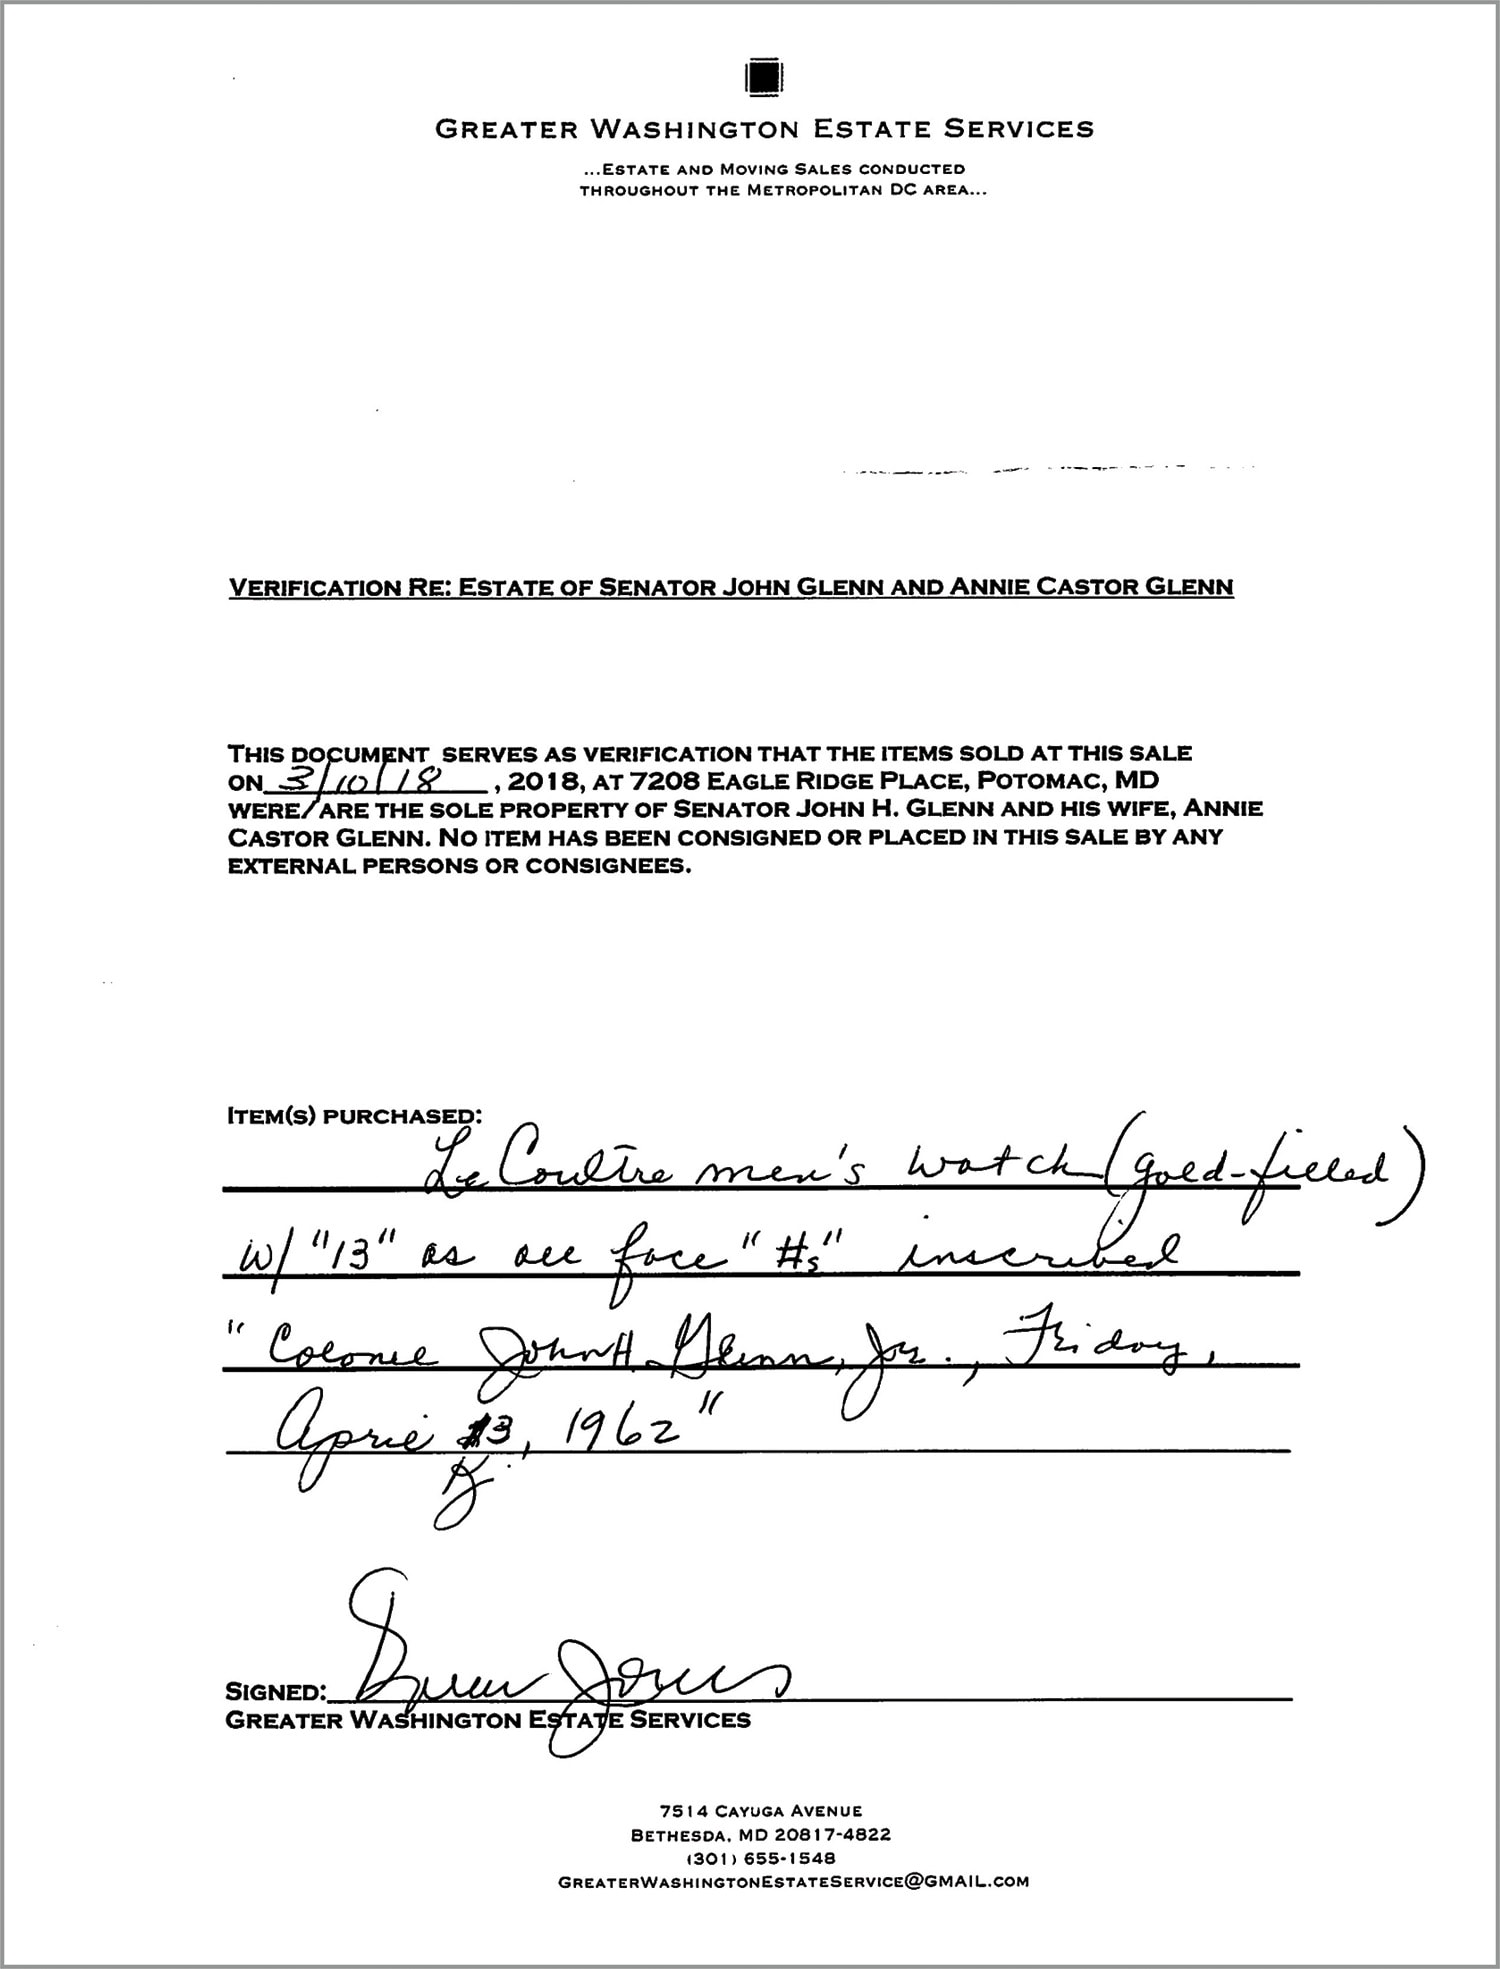 GREATER WASHINGTON ESTATE SERVICES
...ESTATE AND MOVING SALES CONDUCTED
THROUGHOUT THE METROPOLITAN DC AREA...
VERIFICATION RE: ESTATE OF SENATOR JOHN GLENN AND ANNIE CASTOR GLENN
THIS DOCUMENT SERVES AS VERIFICATION THAT THE ITEMS SOLD AT THIS SALE
ON 3/10/18, 2018, AT 7208 EAGLE RIDGE PLACE, POTOMAC, MD
WERE/ARE THE SOLE PROPERTY OF SENATOR JOHN H. GLENN AND HIS WIFE, ANNIE
CASTOR GLENN. NO ITEM HAS BEEN CONSIGNED OR PLACED IN THIS SALE BY ANY
EXTERNAL PERSONS OR CONSIGNEES.
ITEM(S) PURCHASED:
LeCoultre men's watch (gold-filled)
w/ "13" as all face "#s" inscribed
"Colonel John H. Glenn, Jr., Friday,
April 13, 1962"
SIGNED: Jones
GREATER WASHINGTON ESTATE SERVICES
7514 CAYUGA AVENUE
BETHESDA, MD 20817-4822
(301) 655-1548
GREATERWASHINGTONESTATESERVICE@GMAIL.COM